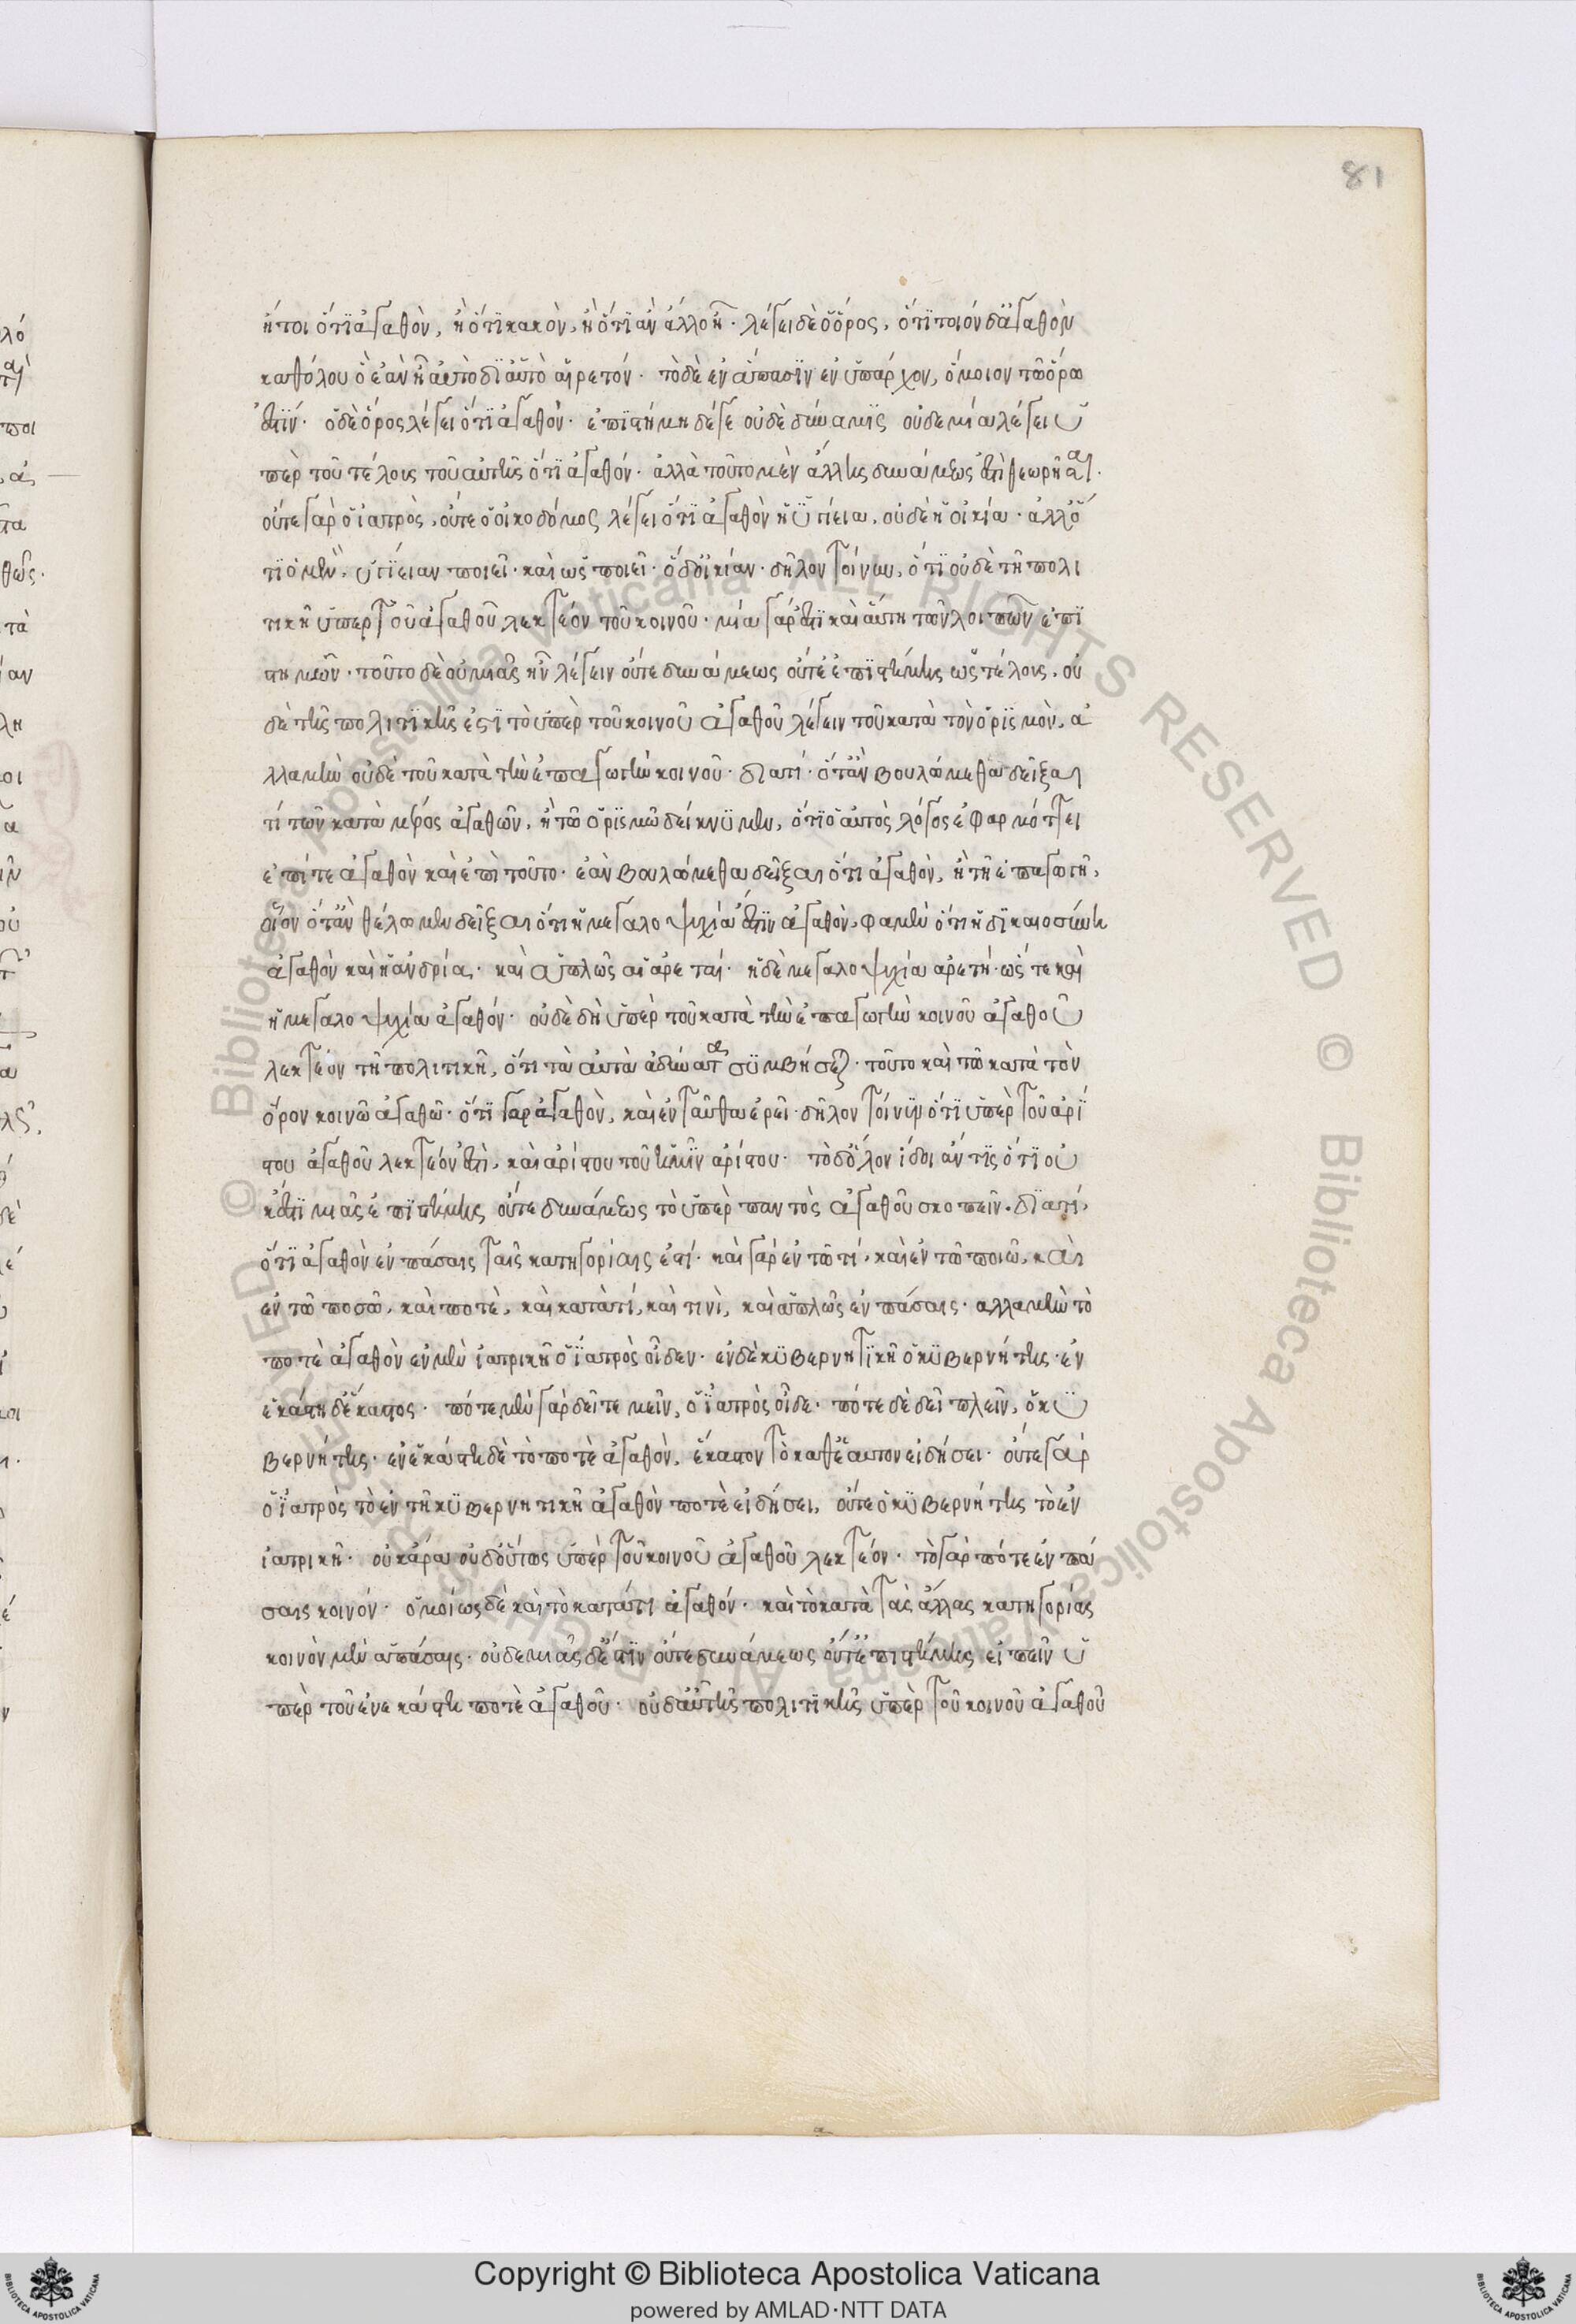 81
ἤτοι ὅτι ἀγαθὸν, ἢ ὅτι κακὸν, ἢ ὅτι ἂν ἄλλο ᾖ· λέγει δὲ ὁ ὅρος, ὅτι τοιόνδ' ἀγαθὸν
καθόλου ὃ ἐὰν ᾖ αὐτὸ δι' αὐτὸ αἱρετόν· τὸ δὲ ἐν ἅπασιν ἐνυπάρχον, ὅμοιον τῶ ὅρω
ἐστίν· ὁ δὲ ὅρος λέγει ὅτι ἀγαθόν· ἐπιστήμη δέ γε οὐδὲ δύναμις οὐδεμία λέγει ὑ
πὲρ τοῦ τέλους τοῦ αὐτῆς ὅτι ἀγαθόν· ἀλλὰ τοῦτο μὲν ἄλλης δυνάμεως ἐστὶ θεωρῆσαι·
οὔτε γὰρ ὁ ἰατρὸς, οὔτε ὁ οἰκοδόμος λέγει ὅτι ἀγαθὸν ἡ ὑγίεια, οὐδὲ ἡ οἰκία· ἀλλ' ὅ
τι ὁ μὲν, ὑγίειαν ποιεῖ· καὶ ὡς ποιεῖ· ὁ δ' οἰκίαν· δῆλον τοίνυν, ὅτι οὐδὲ τῆ πολι
τικῆ ὑπὲρ τοῦ ἀγαθοῦ λεκτέον τοῦ κοινοῦ· μία γάρ ἐστι καὶ αὕτη τῶν λοιπῶν ἐπι
στημῶν· τοῦτο δὲ οὐ μιᾶς ἦν λέγειν οὔτε δυνάμεως οὔτε ἐπιστήμης ὡς τέλους, οὐ
δὲ τῆς πολιτικῆς ἐστὶ τὸ ὑπὲρ τοῦ κοινοῦ ἀγαθοῦ λέγειν τοῦ κατὰ τὸν ὁρισμὸν, ἀ
λλὰ μὴν οὐδὲ τοῦ κατὰ τὴν ἐπαγωγὴν κοινοῦ· διατί· ὅταν βουλώμεθα δεῖξαι
τί τῶν κατὰ μέρος ἀγαθῶν, ἢ τῶ ὁρισμῶ δείκνυμεν, ὅτι ὁ αὐτὸς λόγος ἐφαρμόττει
ἐπί τε ἀγαθὸν καὶ ἐπὶ τοῦτο· ἐὰν βουλώμεθα δεῖξαι ὅτι ἀγαθὸν, ἢ τῆ ἐπαγωγῆ,
οἷον ὅταν θέλωμεν δεῖξαι ὅτι ἡ μεγαλοψυχία ἐστὶν ἀγαθὸν, φαμὲν ὅτι ἡ δικαιοσύνη
ἀγαθὸν καὶ ἡ ἀνδρία, καὶ ἁπλῶς αἱ ἀρεταί· ἡ δὲ μεγαλοψυχία ἀρετή· ὥστε καὶ
ἡ μεγαλοψυχία ἀγαθόν· οὐδὲ δὴ ὑπὲρ τοῦ κατὰ τὴν ἐπαγωγὴν κοινοῦ ἀγαθοῦ
λεκτέον τῆ πολιτικῆ, ὅτι τὰ αὐτὰ ἀδύνατα συμβήσεται τοῦτο καὶ τῶ κατὰ τὸν
ὅρον κοινῶ ἀγαθῶ· ὅτι γὰρ ἀγαθὸν, καὶ ἐνταῦθα ἐρεῖ· δῆλον τοίνυν ὅτι ὑπὲρ τοῦ ἀρί
στου ἀγαθοῦ λεκτέον ἐστὶ, καὶ ἀρίστου τοῦ ἡμῖν ἀρίστου· τὸ δ' ὅλον ἴδοι ἄν τις ὅτι οὐ
κ ἔστι μιᾶς ἐπιστήμης οὔτε δυνάμεως τὸ ὑπὲρ παντὸς ἀγαθοῦ σκοπεῖν· διατί,
ὅτι ἀγαθὸν ἐν πάσαις ταῖς κατηγορίαις ἐστί· καὶ γὰρ ἐν τῶ τί, καὶ ἐν τῶ ποιῶ, καὶ
ἐν τῶ ποσῶ, καὶ ποτὲ, καὶ κατὰ τί, καὶ τινὶ, καὶ ἁπλῶς ἐν πάσαις· ἀλλὰ μὴν τὸ
ποτὲ ἀγαθὸν ἐν μὲν ἰατρικῆ ὁ ἰατρὸς οἶδεν· ἐν δὲ κυβερνητικῆ ὁ κυβερνήτης· ἐν
ἑκάστη δ' ἕκαστος· πότε μὲν γὰρ δεῖ τεμεῖν, ὁ ἰατρὸς οἶδε· πότε δὲ δεῖ πλεῖν, ὁ κυ
βερνήτης· ἐν ἑκάστη δὲ τὸ ποτὲ ἀγαθὸν, ἕκαστον τὸ καθ' ἑαυτὸν εἰδήσει· οὔτε γὰρ
ὁ ἰατρὸς τὸ ἐν τῆ κυβερνητικῆ ἀγαθὸν ποτὲ εἰδήσει, οὔτε ὁ κυβερνήτης τὸ ἐν
ἰατρικῆ· οὐκ ἄρα οὐδ' οὕτως ὑπὲρ τοῦ κοινοῦ ἀγαθοῦ λεκτέον· τὸ γὰρ πότε ἐν πά
σαις κοινόν· ὁμοίως δὲ καὶ τὸ κατά τι ἀγαθόν· καὶ τὸ κατὰ τὰς ἄλλας κατηγορίας
κοινὸν μὲν ἁπάσαις· οὐδεμιᾶς δ' ἐστὶν οὔτε δυνάμεως οὔτ' ἐπιστήμης εἰπεῖν ὑ
πὲρ τοῦ ἐν ἑκάστη ποτὲ ἀγαθοῦ· οὐδ' αὖ τῆς πολιτικῆς ὑπὲρ τοῦ κοινοῦ ἀγαθοῦ
© Biblioteca Apostolica Vaticana ALL RIGHTS RESERVED
Copyright © Biblioteca Apostolica Vaticana
powered by AMLAD·NTT DATA